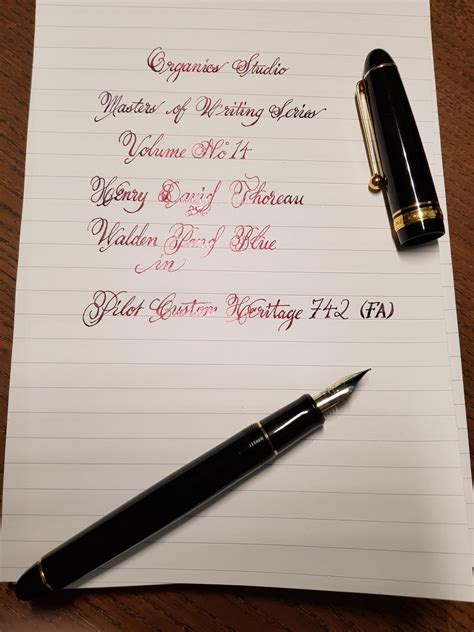 Organics Studio
Masters of Writing Series
Volume No 14
Henry David Thoreau
Walden Pond Blue
in
Pilot Custom Heritage 742 (FA)